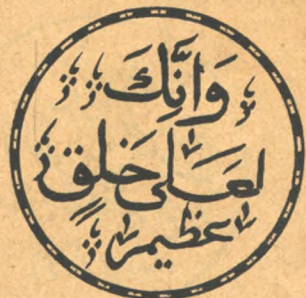 وَانَّكَ
لَعَلٰى خَلقٍ
عظیم